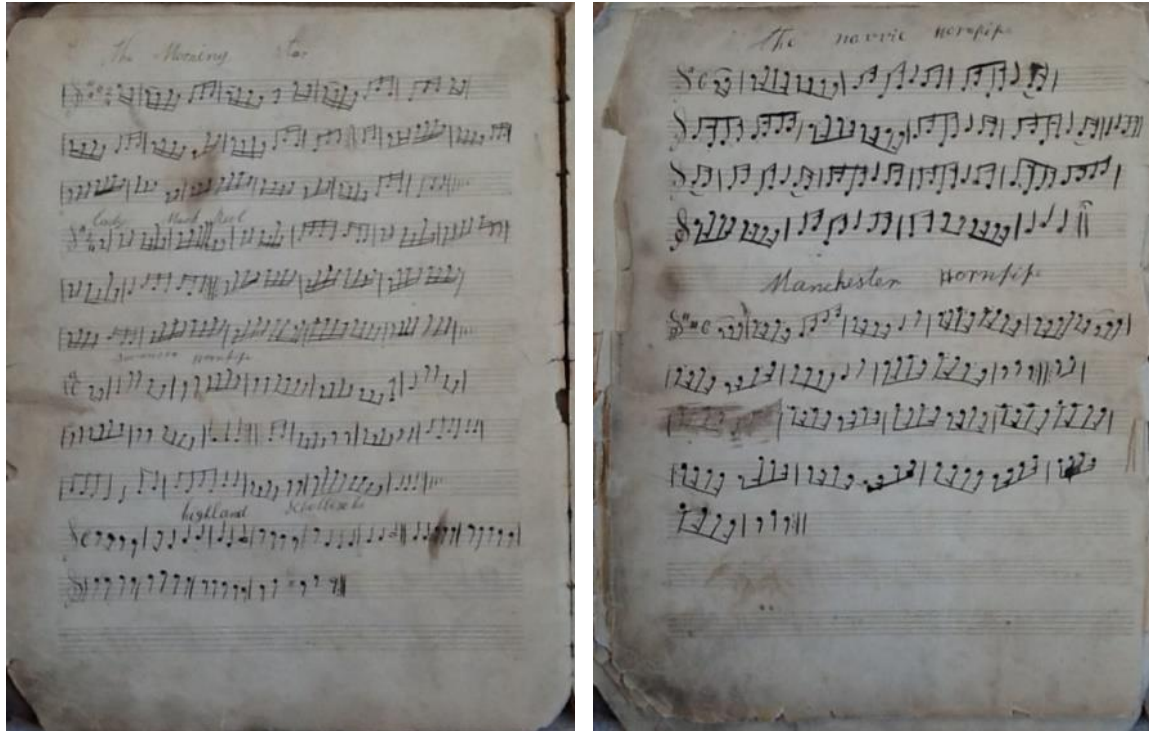 the Morning Star
Lady Mack Reel
Hornpipe
highland Schottische
the navvie Hornpipe
Manchester Hornpipe